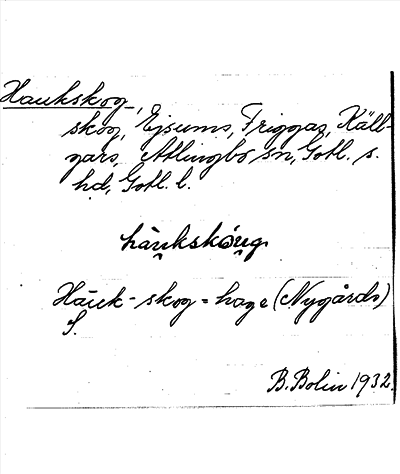 Haukskog,
skog, Ejsums, Friggas, Käll-
gars, Atlingbo sn, Gotl. s.
hd, Gotl. l.
hàu̯kskóu̯g
Häuk-skog = hage (Nygårds)
S.
B. Bolin 1932.